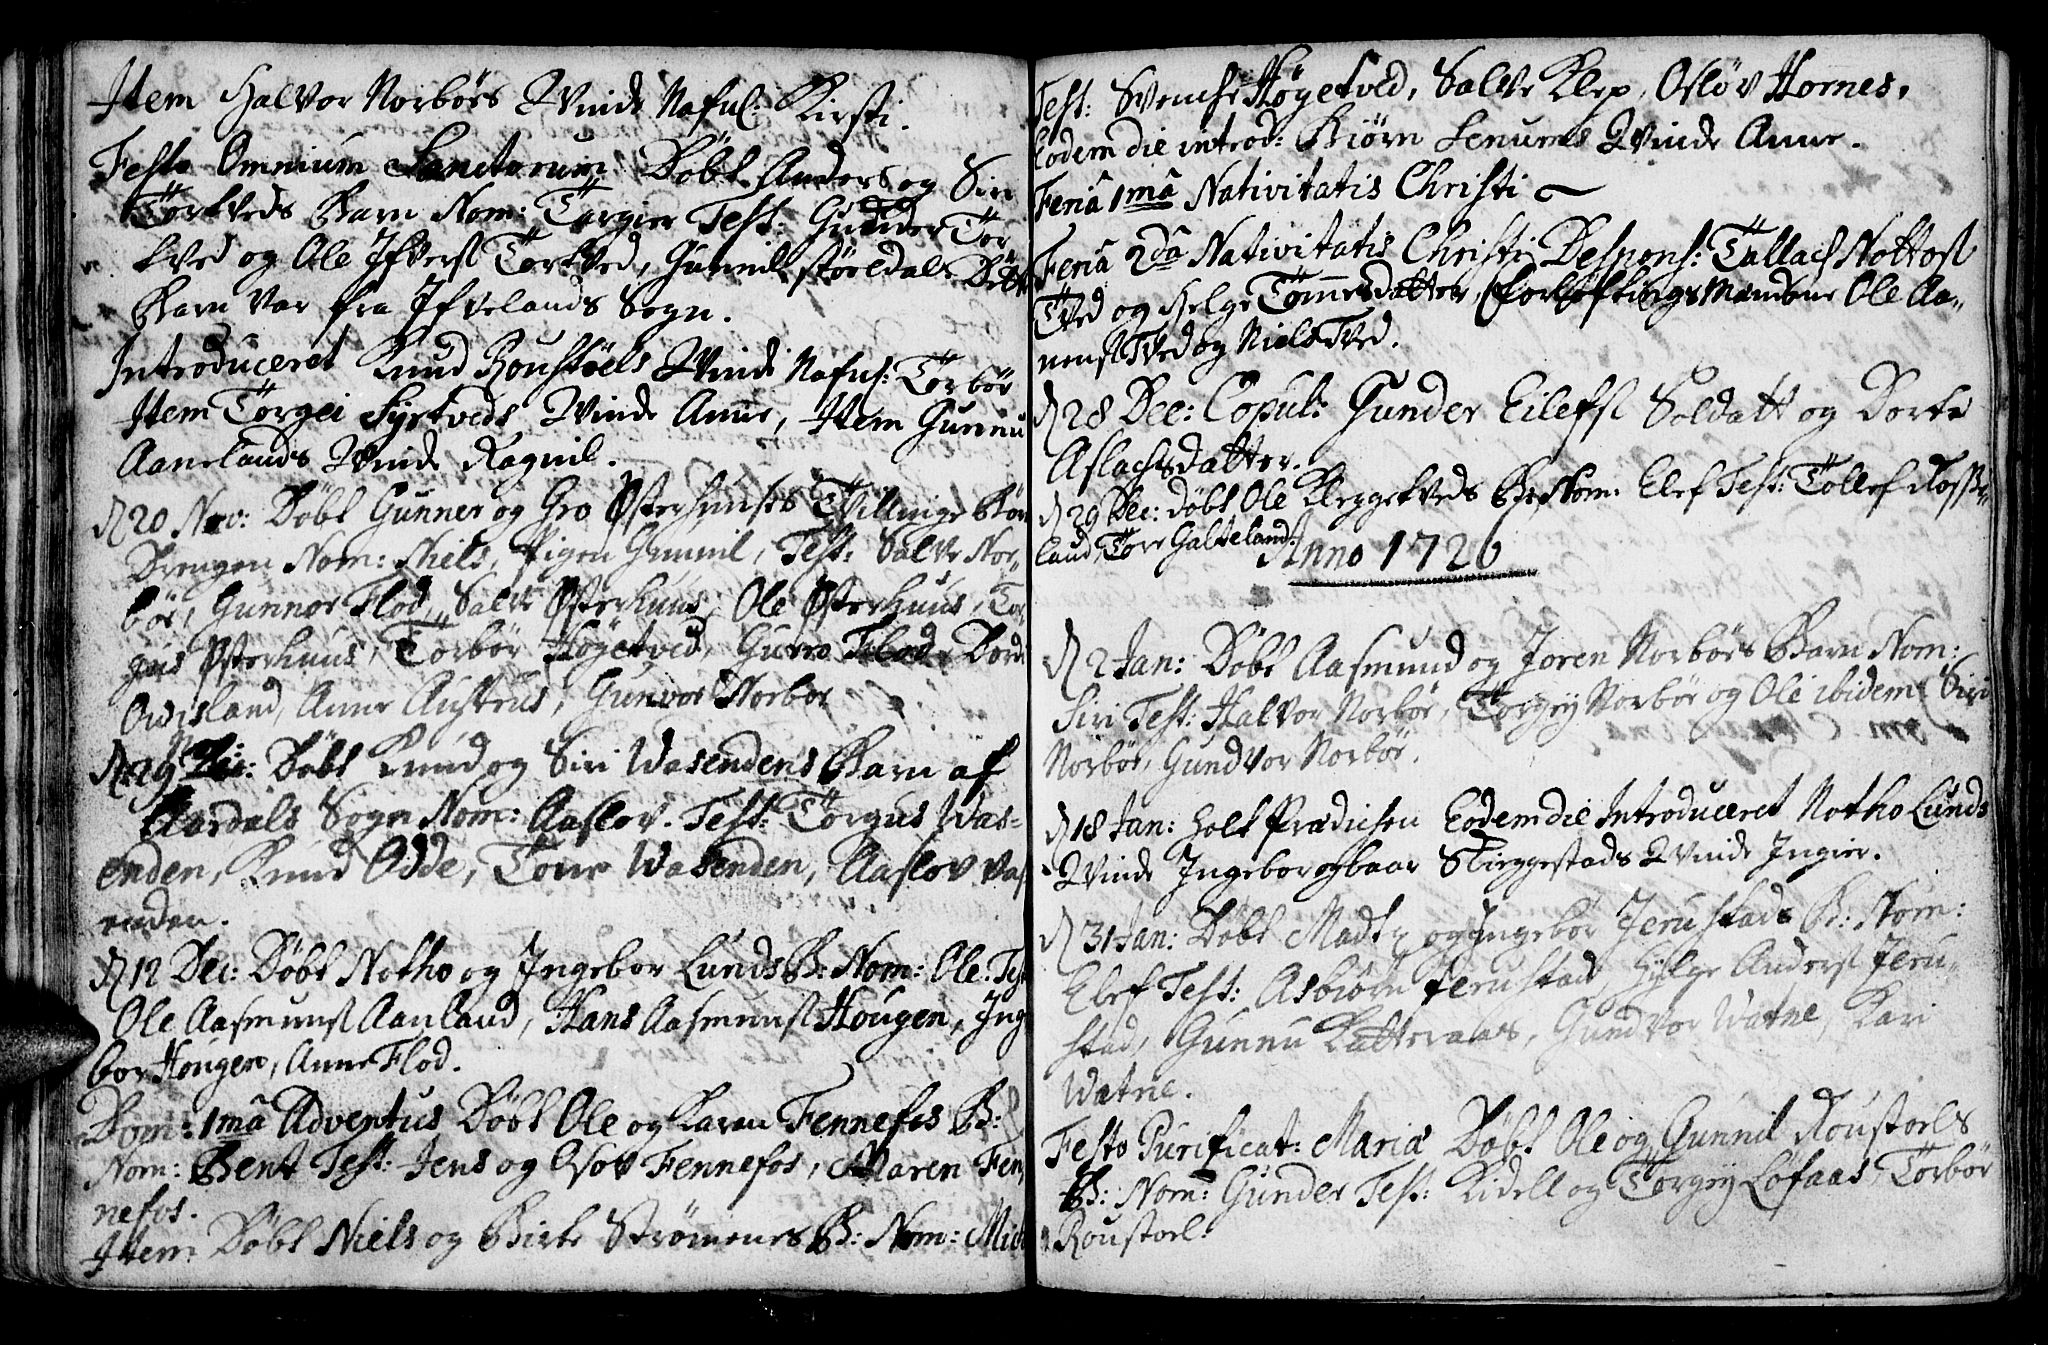 Item Halvor Norbørs Qvinde Nafnl: Kirsti.
Festo Omnium Sanctorum Døbt Anders og Siri
Torkveds Barn Nom: Torgier Test: Gunder Tor
kved og Ole Ifversl Torkved, Gunnil støeldal Dette
Barn var fra Ifvelands Sogn.
Introduceret Knud Roustøels Qvinde Nafnl: Torbør
Item Torgei Syrtveds Qvinde Anne, Item Gunnu
Aanelands Qvinde Ragnil.
D 20 Nov: Døbt Gunner og Gro Østerhuuses Tvillinge Børn
Drengen Nom: Niels, Pigen Gunnil, Test: Salve Nor-
bør, Gunnor Flod, Salve Østerhuus, Ole Østerhuus, Tor
gus Østerhuus, Torbør Høgetved, Guro Flod, Dord
Owisland, Anne Austrus, Gunvor Norbør
D 29 Døbt Knud og Siri Wasendens Barn af
Aardals Sogn Nom: Aaslov. Test: Torgus Was-
enden, Knud Odde, Tone Wasenden, Aaslov Vas
enden.
D 12 Dec: Døbt Notho og Ingebor Lunds B: Nom: Ole: Test
Ole Aasmunsl Aanland, Hans Aasmunsl Hougen, Ing
bor Hougen, Anne Flod.
Dom: 1mâ Adventus Døbt Ole og Karen Fennefos B:
Nom: Bent Test: Jens og Aasov Fennefos, Maren Fen
nefos.
Item: Døbt Niels og Birte Strømenes B: Nom: Mich
Test: Svenche Høgetved, Salve Klep, Osløv Hornes,
Eodem die introd: Biørn Senums Qvinde Anne.
Feriâ 1mâ Nativitatis Christi
Feriâ 2dâ Nativitatis Christi Despons: Tallach Nottosl
Tved og Helge Tommesdatter, Forløftings Mændene Ole Aa-
nensl Tved og Niels Tved.
D 28 Dec: Copul: Gunder Eilefsl Soldatt og Dorte
Aslachsdatter.
D 29 Dec: døbt Ole Kleggetveds B: Nom: Elef Test: Tollef Rosse-
land, Tore Galteland:
Anno 1726
D 2 Jan: Døbt Aasmund og Joren Norbørs Barn Nom:
Siri Test: Halvor Norbør, Torgey Norbør og Ole ibidem Siri
Norbør, Gundvor Norbør.
D 18 Jan: Holt Prædichen Eodem die Introduceret Notho Lunds
Qvinde Ingebor Stieggestads Qvinde Ingier.
D 31 Jan: Døbt Madtz og Ingebor Jerustads B: Nom:
Elef Test: Asbiørn Jerustad, Hylge Andersl Jeru-
stad, Gunnu Katteraas, Gundvor Watne, Kari
Watne.
Festo Purificat: Mariæ Døbt Ole og Gunnil Roustoels
B: Nom: Gunder Test: Kidell og Torgey Løfaas, Torbør
Roustoel: